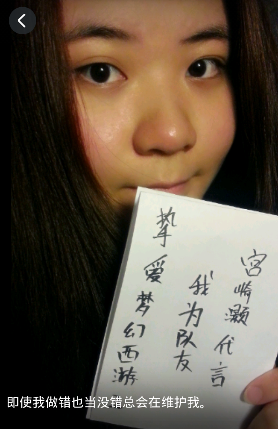 挚爱梦幻西游
我为队友
宫崎灏代言
即使我做错也当没错总会在维护我。